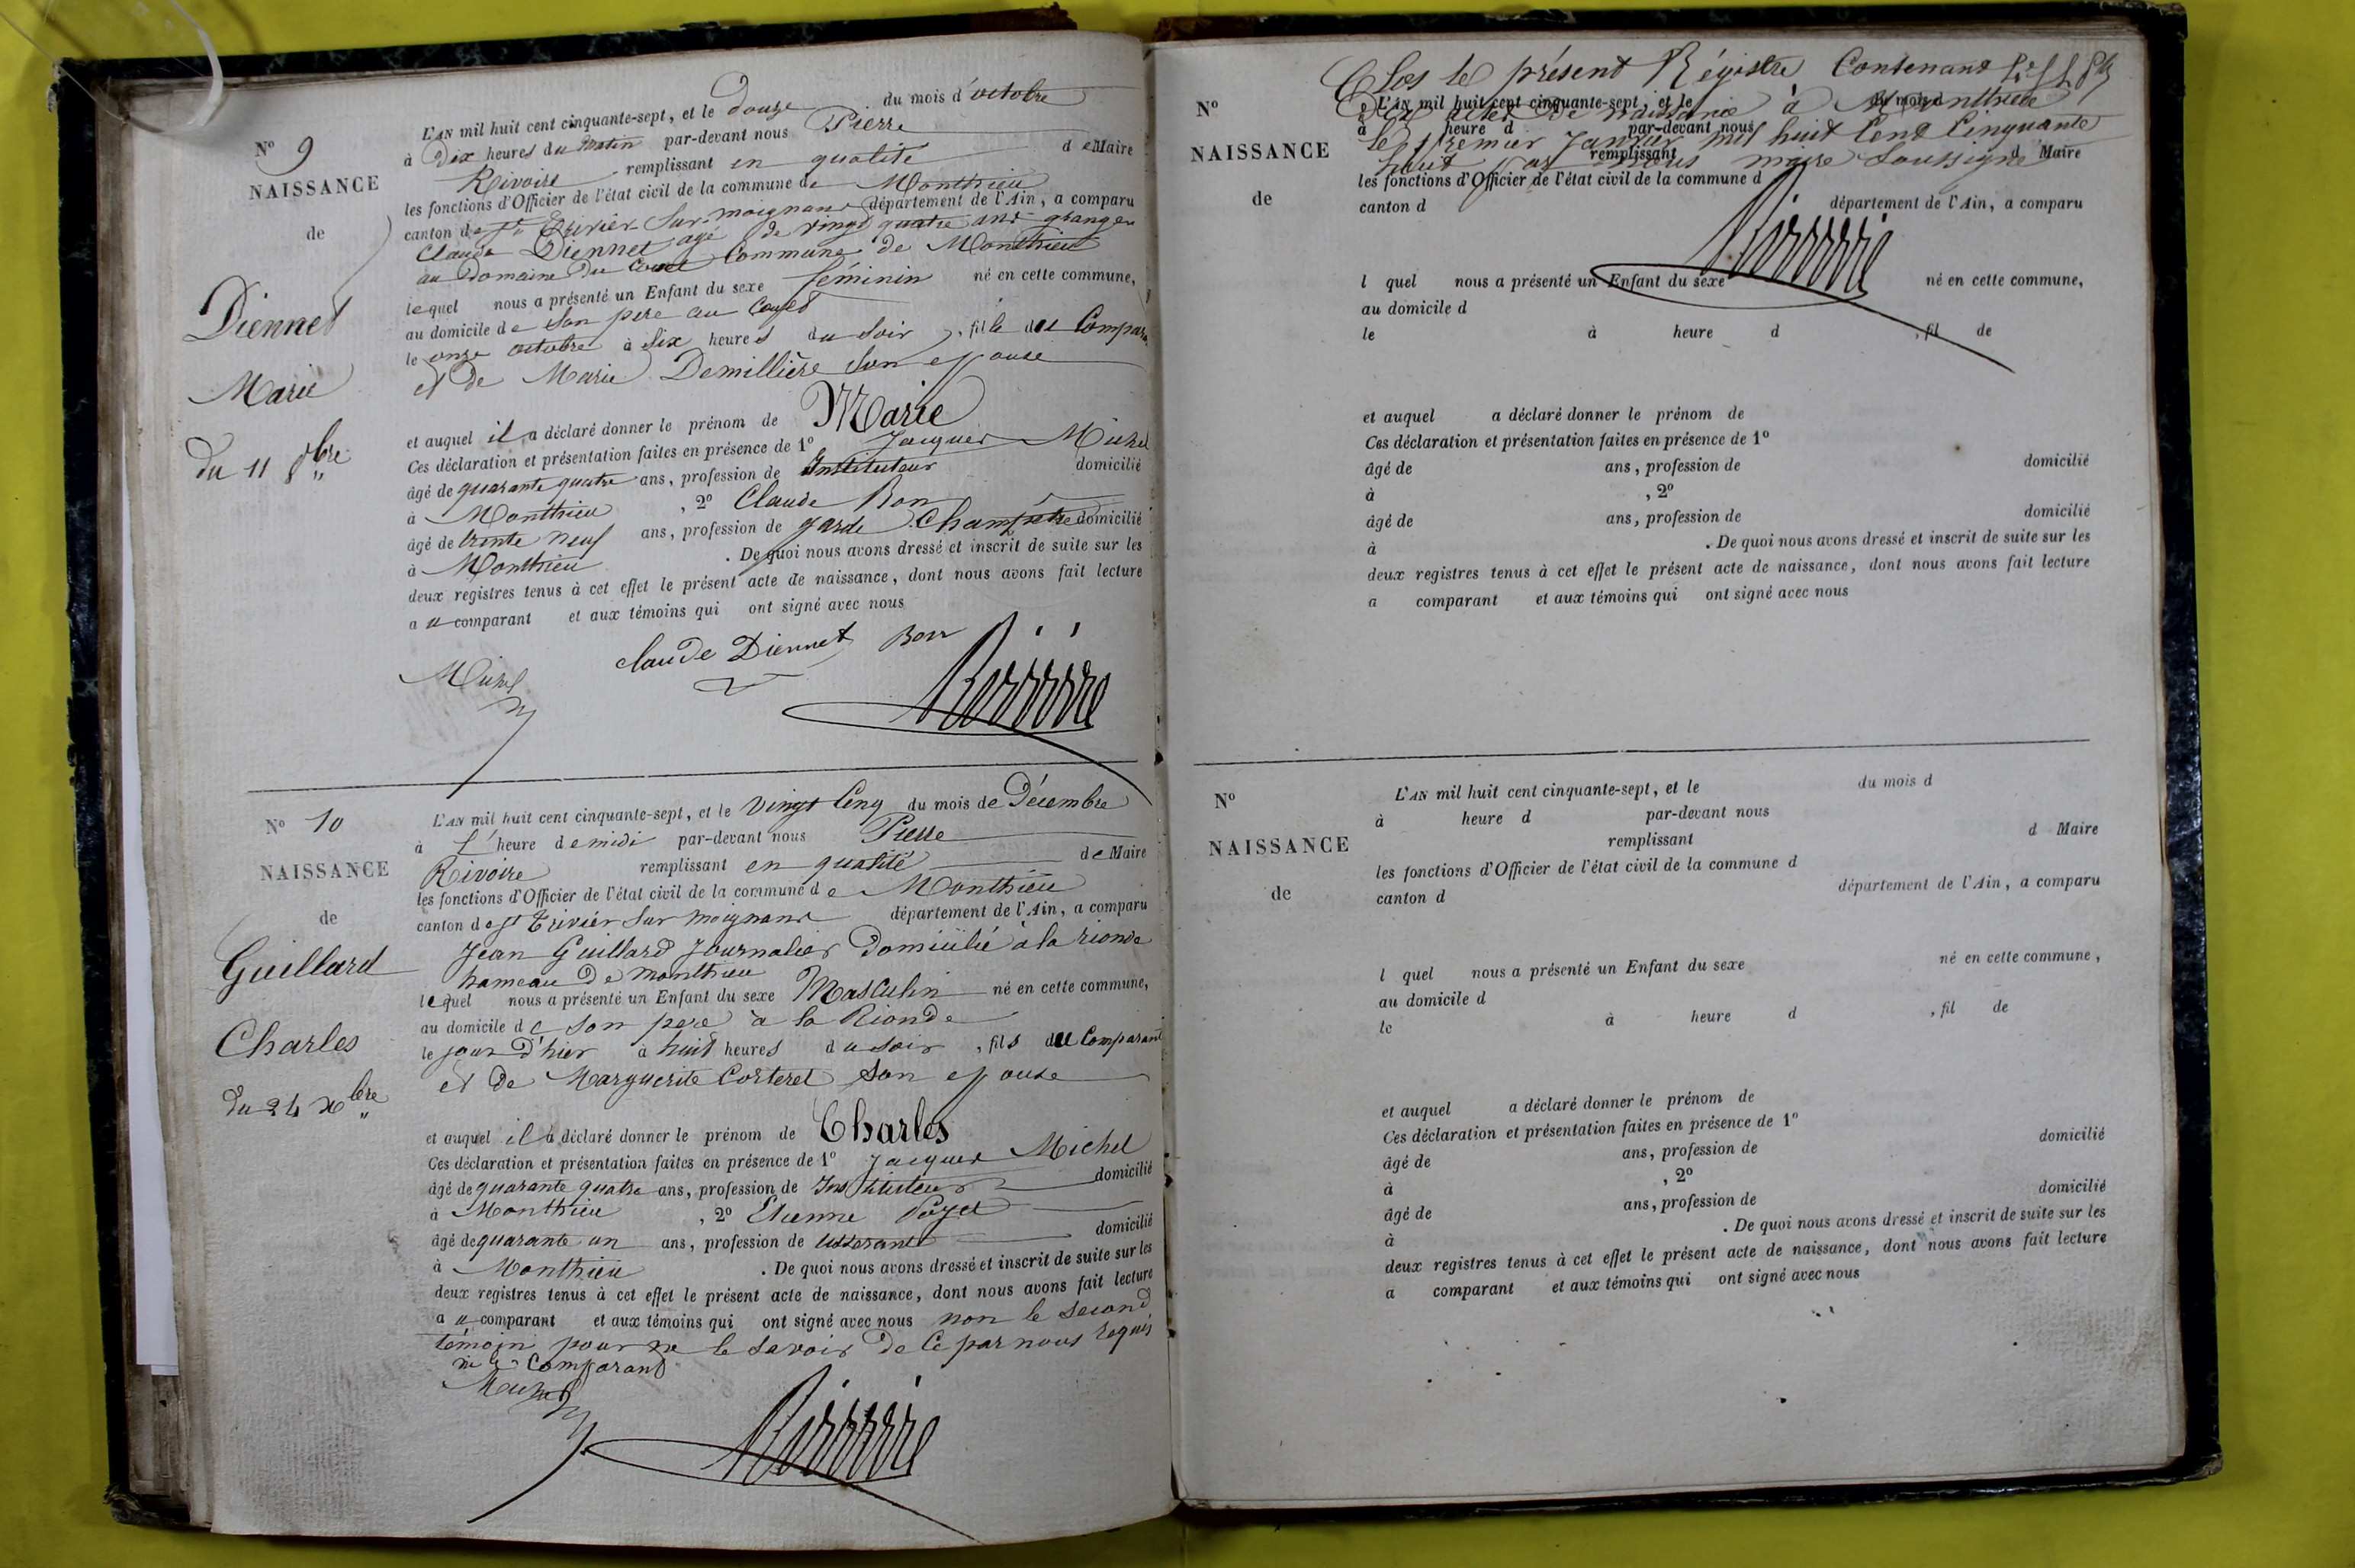 N° 9
NAISSANCE
de
Diennet
Marie
du 11 8bre
L'AN mil huit cent cinquante-sept, et le douze du mois d'octobre
à Dix heures du matin par-devant nous Pierre
Rivoire remplissant en qualité de Maire
les fonctions d'Officier de l'état civil de la commune de Monthieu
canton de St Trivier sur moignans département de l'Ain, a comparu
Claude Diennet agé de vingt quatre ans granger
au Domaine Du Commune de Monthieu
lequel nous a présenté un Enfant du sexe féminin né en cette commune,
au domicile de son pere au
le onze octobre à six heures du soir, fille du Compara
et de Marie Demillière son epouse
et auquel il a déclaré donner le prénom de Marie
Ces déclaration et présentation faites en présence de 1° Jacques Michel
âgé de quarante quatre ans, profession de Instituteur domicilié
à Monthieu, 2° Claude Bon
âgé de trente neuf ans, profession de garde Champêtre domicilié
à Monthieu. De quoi nous avons dressé et inscrit de suite sur les
deux registres tenus à cet effet le présent acte de naissance, dont nous avons fait lecture
au comparant et aux témoins qui ont signé avec nous
Michel claude Diennet Bon
Rivoire
N° 10
NAISSANCE
de
Guillard
Charles
du 24 xbre
L'AN mil huit cent cinquante-sept, et le vingt Cinq du mois de Décembre
à l'heure de midi par-devant nous Pierre
Rivoire remplissant en qualité de Maire
les fonctions d'Officier de l'état civil de la commune de Monthieu
canton de St Trivier sur moignans département de l'Ain, a comparu
Jean Guillard Journalier domicilié à la rionde
hameau De monthieu
lequel nous a présenté un Enfant du sexe Masculin né en cette commune,
au domicile de son pere à la Rionde
le jour D'hier à huit heures du soir, fils du Comparant
et de Marguerite Corteret son epouse
et auquel il a déclaré donner le prénom de Charles
Ces déclaration et présentation faites en présence de 1° Jacques Michel
âgé de quarante quatre ans, profession de Instituteur domicilié
à Monthieu, 2° Etienne
âgé de quarante un ans, profession de domicilié
à Monthieu. De quoi nous avons dressé et inscrit de suite sur les
deux registres tenus à cet effet le présent acte de naissance, dont nous avons fait lecture
au comparant et aux témoins qui ont signé avec nous non le second
témoin pour ne le savoir de Ce par nous requis
ni le Comparant
Michel
Rivoire
Clos le présent Régistre Contenant
Dix actes de naissance à Monthieu
le premier Janvier mil huit Cent Cinquante
huit par nous maire Soussigné
Rivoire
N°
NAISSANCE
de
L'AN mil huit cent cinquante-sept, et le du mois d
à heure d par-devant nous
remplissant d Maire
les fonctions d'Officier de l'état civil de la commune d
canton d département de l'Ain, a comparu
l quel nous a présenté un Enfant du sexe né en cette commune,
au domicile d
le à heure d , fil de
et auquel a déclaré donner le prénom de
Ces déclaration et présentation faites en présence de 1°
âgé de ans, profession de domicilié
à , 2°
âgé de ans, profession de domicilié
à . De quoi nous avons dressé et inscrit de suite sur les
deux registres tenus à cet effet le présent acte de naissance, dont nous avons fait lecture
a comparant et aux témoins qui ont signé avec nous
N°
NAISSANCE
de
L'AN mil huit cent cinquante-sept, et le du mois d
à heure d par-devant nous
remplissant d Maire
les fonctions d'Officier de l'état civil de la commune d
canton d département de l'Ain, a comparu
l quel nous a présenté un Enfant du sexe né en cette commune,
au domicile d
le à heure d , fil de
et auquel a déclaré donner le prénom de
Ces déclaration et présentation faites en présence de 1°
âgé de ans, profession de domicilié
à , 2°
âgé de ans, profession de domicilié
à . De quoi nous avons dressé et inscrit de suite sur les
deux registres tenus à cet effet le présent acte de naissance, dont nous avons fait lecture
a comparant et aux témoins qui ont signé avec nous